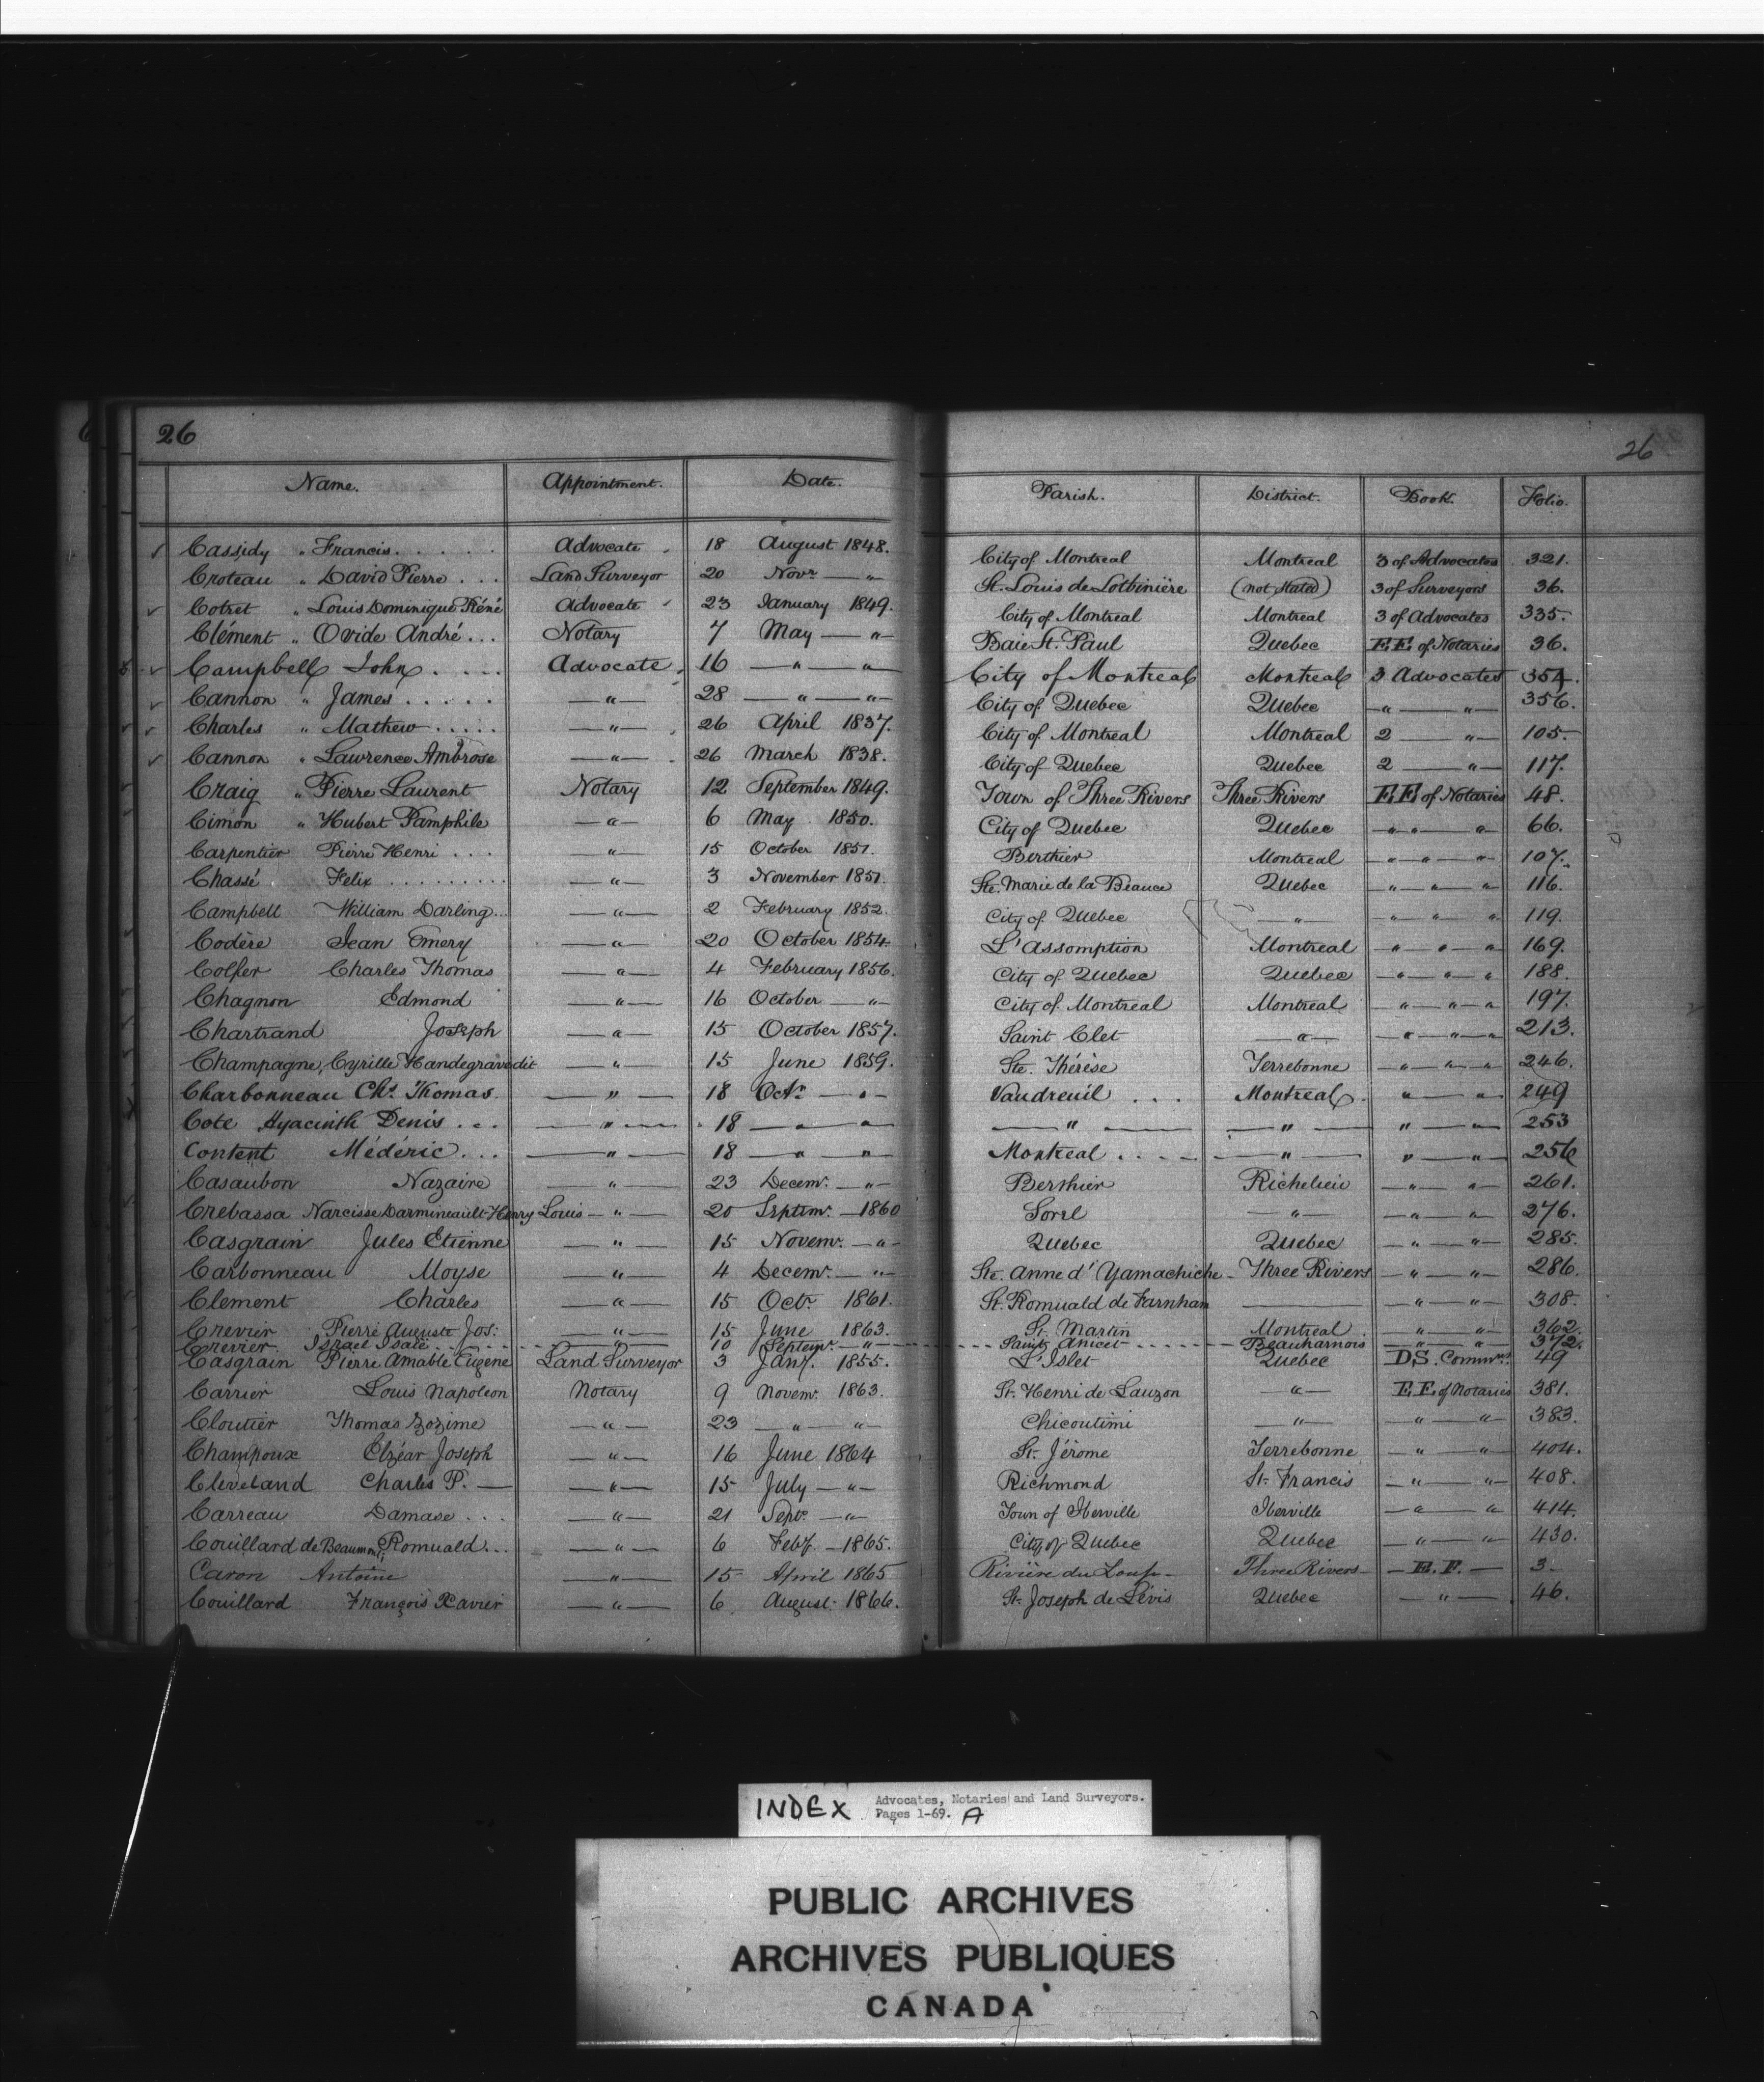 26
26
Name. Appointment. Date. Parish. District. Book. Folio.
Cassidy " Francis. . . . . . Advocate 18 August 1848. City of Montreal Montreal 3 of Advocates 321.
Croteau " David Pierre . . . Land Surveyor 20 Novr — " St. Louis de Lotbinière (not stated) 3 of Surveyors 36.
Cotret " Louis Dominique Réné Advocate 23 January 1849. City of Montreal Montreal 3 of Advocates 335.
Clément " Ovide André . . . Notary 7 May — " — Baie St. Paul Quebec E.E. of Notaries 36.
Campbell John . . . . Advocate 16 — " — " City of Montreal Montreal 3 Advocates 354.
Cannon " James . . . . . — " — 28 — " — " — City of Quebec Quebec — " — " — 356.
Charles " Mathew . . . . . — " — 26 April 1837. City of Montreal Montreal 2 — " — 105.
Cannon " Lawrence Ambrose — " — 26 March 1838. City of Quebec Quebec 2 — " — 117.
Craig " Pierre Laurent Notary 12 September 1849. Town of Three Rivers Three Rivers E.E of Notaries 48.
Cimon " Hubert Pamphile — " — 6 May 1850. City of Quebec Quebec — " " — " — 66.
Carpentier Pierre Henri . . . — " — 15 October 1851. Berthier Montreal — " — " — " — 107.
Chassé Felix . . . . . . . . . — " — 3 November 1851. Ste. Marie de la Beauce Quebec " — " — " 116.
Campbell William Darling . . — " — 2 February 1852. City of Quebec — " — — " — " — " 119.
Codère Jean Emery — " — 20 October 1854. L'Assomption Montreal — " — " — " 169.
Colfer Charles Thomas — " — 4 February 1856. City of Quebec Quebec — " — " — " 188.
Chagnon Edmond — " — 16 October — " — City of Montreal Montreal " — " — " 197.
Chartrand Joseph — " — 15 October 1857. Saint Clet — " — " — " — " 213.
Champagne, Cyrille Handegrave dit — " — 15 June 1859. Ste. Thérèse Terrebonne " — " — " 246.
Charbonneau Chs. Thomas. — " — 18 Octr. — " — Vaudreuil . . . Montreal " — " 249
Cote Hyacinth Denis . . . — " — 18 — " — " — — " — — " — " — " 253
Content Médéric . . . — " — 18 — " — " Montreal . . . . — " — " — " 256
Casaubon Nazaire — " — 23 Decem. — " — Berthier Richelieu — " — " 261.
Crebassa Narcisse Darmineault-Henry Louis — " — 20 Septem. — 1860 Sorel — " — — " — " — 276.
Casgrain Jules Etienne — " — 15 Novem. — " — Quebec Quebec — " — " — 285.
Carbonneau Moyse — " — 4 Decem. — " — Ste. Anne d'Yamachiche — Three Rivers — " — " — 286.
Clement Charles — " — 15 Octr. 1861. St. Romuald de Farnham — — " — " — 308.
Crevier Pierre Auguste Jos: — " — 15 June 1863. St. Martin Montreal " — " — 362.
Crevier. Israel Isaïe . . . . . — " — 10 Septem. — " — Saint Anicet . . . . . . Beauharnois " — " 372.
Casgrain Pierre Amable Eugène Land Surveyor 3 Jany. 1855. L'Islet Quebec D.S. Commns. 49
Carrier Louis Napoleon Notary 9 Novem. 1863. St. Henri de Lauzon — " — E.E. of Notaries 381.
Cloutier Thomas Zozime — " — 23 — " — " — Chicoutimi — " — " — " — 383.
Champoux Elzéar Joseph — " — 16 June 1864 St. Jérome Terrebonne — " — " — 404.
Cleveland Charles P. — — " — 15 July — " — Richmond St. Francis — " — " — 408.
Carreau Damase . . . — " — 21 Septr. — " — Town of Iberville Iberville — " — " 414.
Couillard de Beaumont, Romuald . . . — " — 6 Feby. — 1865. City of Quebec Quebec — " — " 430.
Caron Antoine — " — 15 April 1865 Rivière du Loup — Three Rivers — — E.F. — 3.
Couillard François Xavier — " — 6 August. 1866. St. Joseph de Lévis Quebec — " — 46.
INDEX Advocates, Notaries and Land Surveyors.
Pages 1-69. A
PUBLIC ARCHIVES
ARCHIVES PUBLIQUES
CANADA